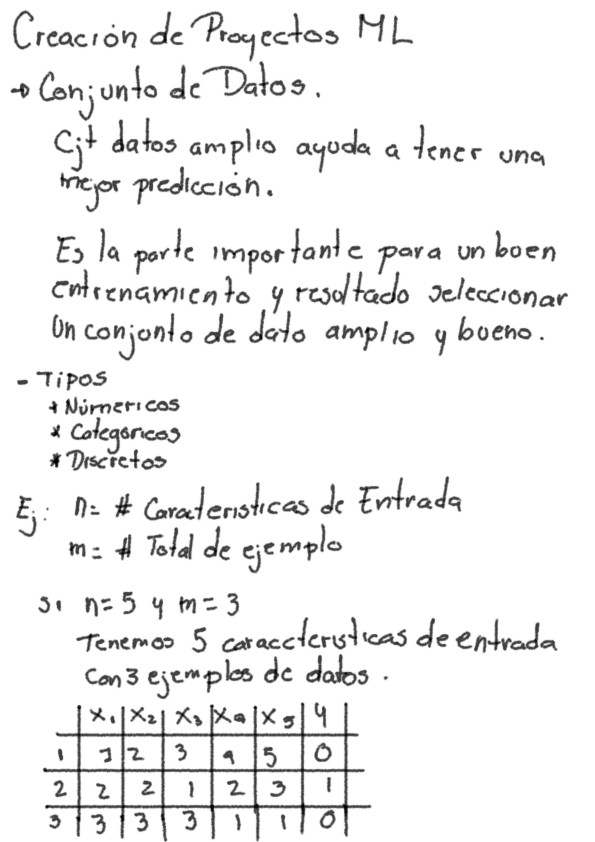 Creación de Proyectos ML
→ Conjunto de Datos.
Cjt datos amplio ayuda a tener una
mejor predicción.
Es la parte importante para un buen
entrenamiento y resultado seleccionar
Un conjunto de dato amplio y bueno.
- Tipos
* Númericos
* Categóricos
* Discretos
Ej: n= # Caracteristicas de Entrada
m= # Total de ejemplo
Si n=5 y m=3
Tenemos 5 caraccteristicas de entrada
con 3 ejemplos de datos.
X1 X2 X3 X4 X5 Y
1 1 2 3 4 5 0
2 2 2 1 2 3 1
3 3 3 3 1 1 0